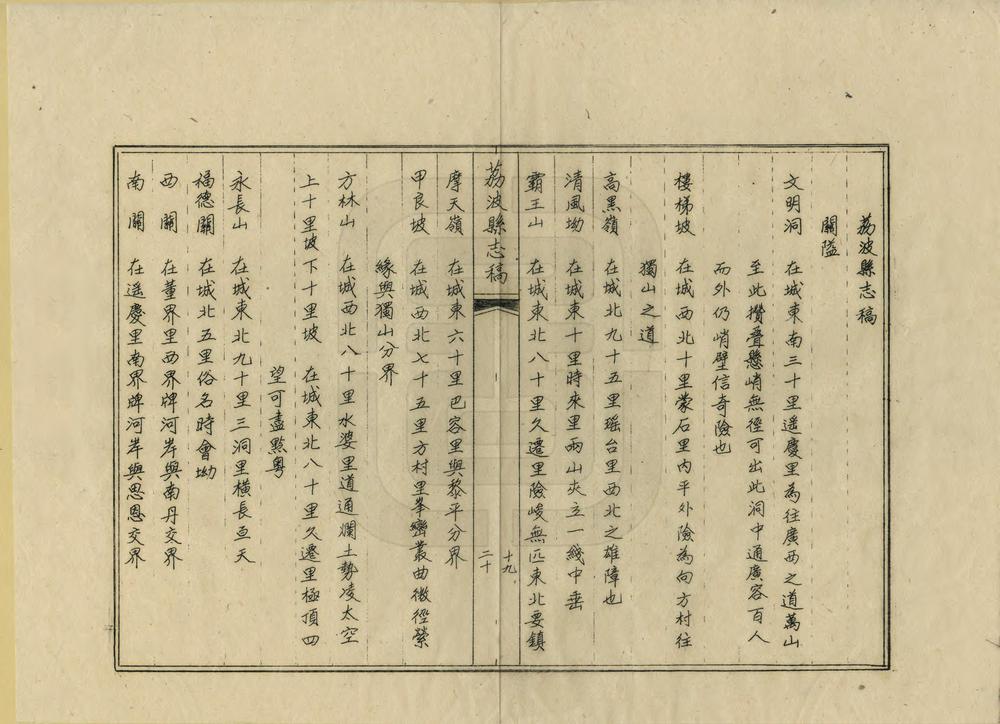 荔波縣志稿
關隘
文明洞 在城東南三十里遥慶里為往廣西之道萬山
至此攢疊懸峭無徑可出此洞中通廣容百人
而外仍峭壁信奇險也
樓梯坡 在城西北十里蒙石里内平外險為向方村往
獨山之道
高黑嶺 在城北九十五里瑶台里西北之雄障也
清風坳 在城東十里時來里兩山夾立一綫中垂
霸王山 在城東北八十里久遷里險峻無匹東北要鎮
荔波縣志稿
十九
二十
摩天嶺 在城東六十里巴容里與黎平分界
甲良坡 在城西北七十五里方村里峯巒叢曲微徑縈
緣與獨山分界
方林山 在城西北八十里水婆里道通爛土勢凌太空
上十里坡下十里坡 在城東北八十里久遷里極頂四
望可盡黔粤
永長山 在城東北九十里三洞里橫長亘天
福德關 在城北五里俗名時會坳
西關 在董界里西界牌河岸與南丹交界
南關 在遥慶里南界牌河岸與思恩交界